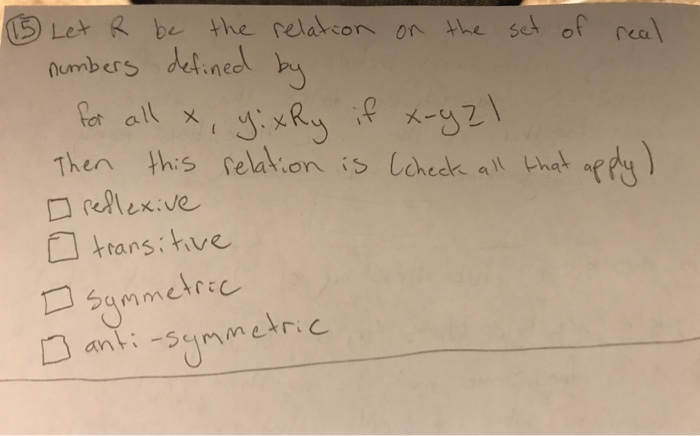 15 Let R be the relation on the set of real
numbers defined by
for all x, y: xRy if x-y≥1
Then this relation is (check all that apply)
□ reflexive
□ transitive
□ symmetric
□ anti-symmetric